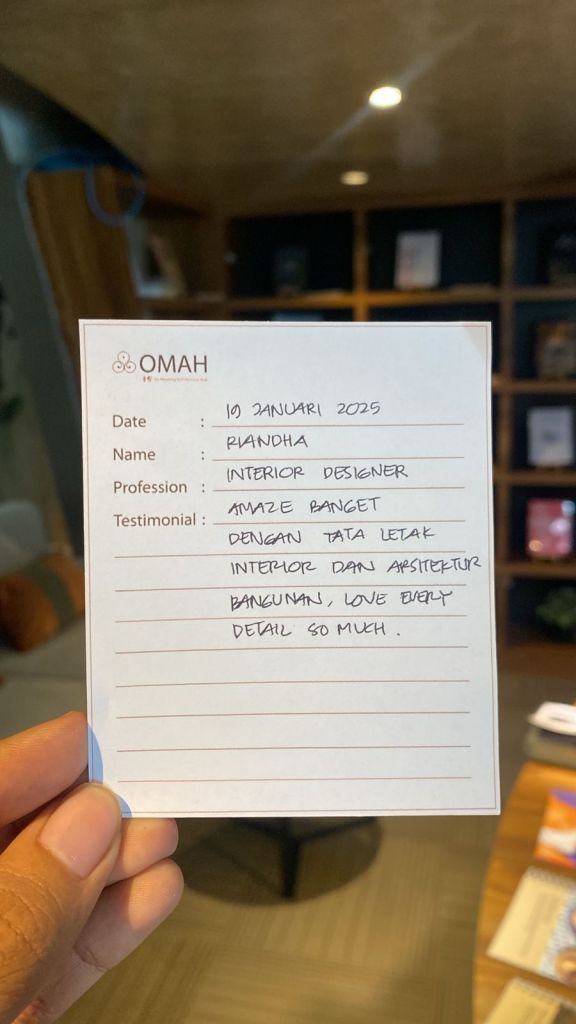 OMAH
Date : 19 JANUARI 2025
Name : RIANDHA
Profession : INTERIOR DESIGNER
Testimonial : AMAZE BANGET
DENGAN TATA LETAK
INTERIOR DAN ARSITEKTUR
BANGUNAN, LOVE EVERY
DETAIL SO MUCH.